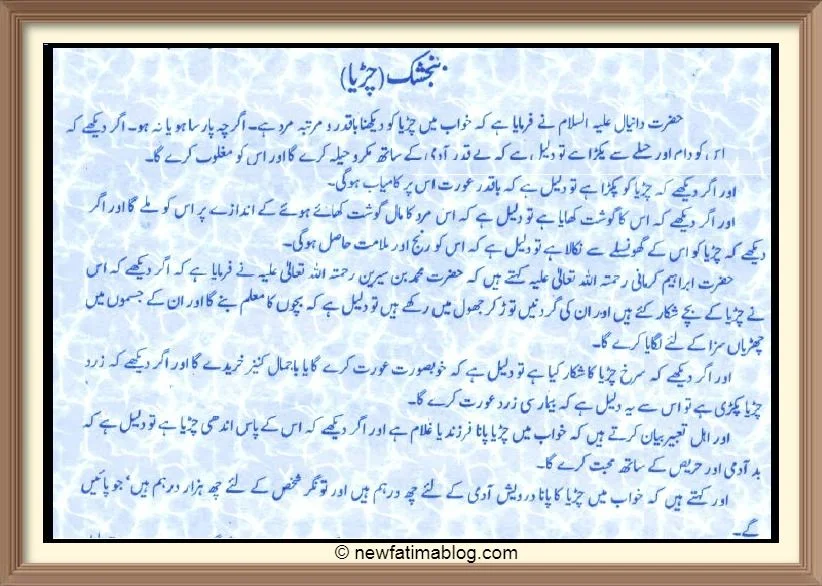 بنجشک (چڑیا)
حضرت دانیال علیہ السلام نے فرمایا ہے کہ خواب میں چڑیا کو دیکھنا باقدر و مرتبہ مرد ہے۔ اگرچہ پارسا ہو یا نہ ہو۔ اگر دیکھے کہ
اس کو دام اور حیلے سے پکڑا ہے تو دلیل ہے کہ بے قدر آدمی کے ساتھ مکر و حیلہ کرے گا اور اس کو مغلوب کرے گا۔
اور اگر دیکھے کہ چڑیا کو پکڑا ہے تو دلیل ہے کہ باقدر عورت اس پر کامیاب ہوگی۔
اور اگر دیکھے کہ اس کا گوشت کھایا ہے تو دلیل ہے کہ اس مرد کا مال گوشت کھائے ہوئے کے اندازے پر اس کو ملے گا اور اگر
دیکھے کہ چڑیا کو اس کے گھونسلے سے نکالا ہے تو دلیل ہے کہ اس کو رنج اور ملامت حاصل ہوگی۔
حضرت ابراہیم کرمانی رحمتہ اللہ تعالیٰ علیہ کہتے ہیں کہ حضرت محمد بن سیرین رحمتہ اللہ تعالیٰ علیہ نے فرمایا ہے کہ اگر دیکھے کہ اس
نے چڑیا کے بچے شکار کئے ہیں اور ان کی گردنیں توڑ کر جھول میں رکھے ہیں تو دلیل ہے کہ بچوں کا معلم بنے گا اور ان کے جسموں میں
چھڑیاں سزا کے لئے لگایا کرے گا۔
اور اگر دیکھے کہ سرخ چڑیا کا شکار کیا ہے تو دلیل ہے کہ خوبصورت عورت کرے گا یا باجمال کنیز خریدے گا اور اگر دیکھے کہ زرد
چڑیا پکڑی ہے تو اس سے یہ دلیل ہے کہ بیمار سی زرد عورت کرے گا۔
اور اہل تعبیر بیان کرتے ہیں کہ خواب میں چڑیا پانا فرزند یا غلام ہے اور اگر دیکھے کہ اس کے پاس اندھی چڑیا ہے تو دلیل ہے کہ
بد آدمی اور حریص کے ساتھ محبت کرے گا۔
اور کہتے ہیں کہ خواب میں چڑیا کا پانا درویش آدمی کے لئے چھ درہم ہیں اور تونگر شخص کے لئے چھ ہزار درہم ہیں' جو پائیں
گے۔
© newfatimablog.com